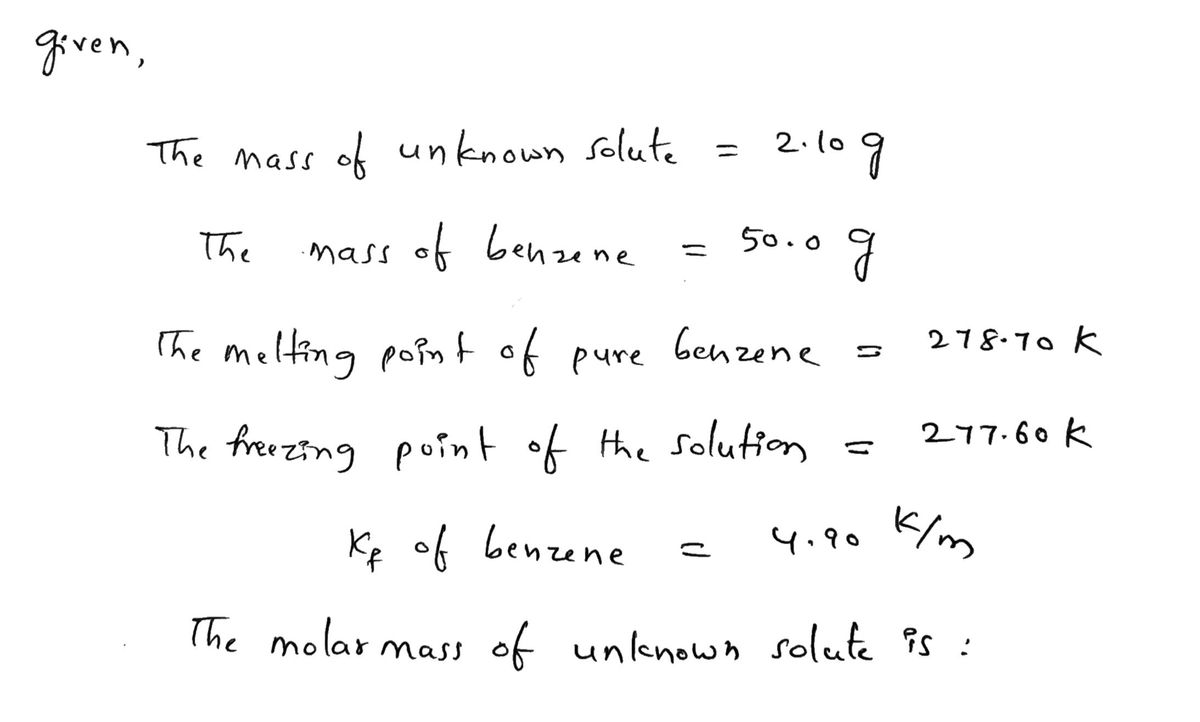 given,
The mass of unknown solute = 2.10 g
The mass of benzene = 50.0 g
The melting point of pure benzene = 278.70 K
The freezing point of the solution = 277.60 K
Kf of benzene = 4.90 K/m
The molar mass of unknown solute is :